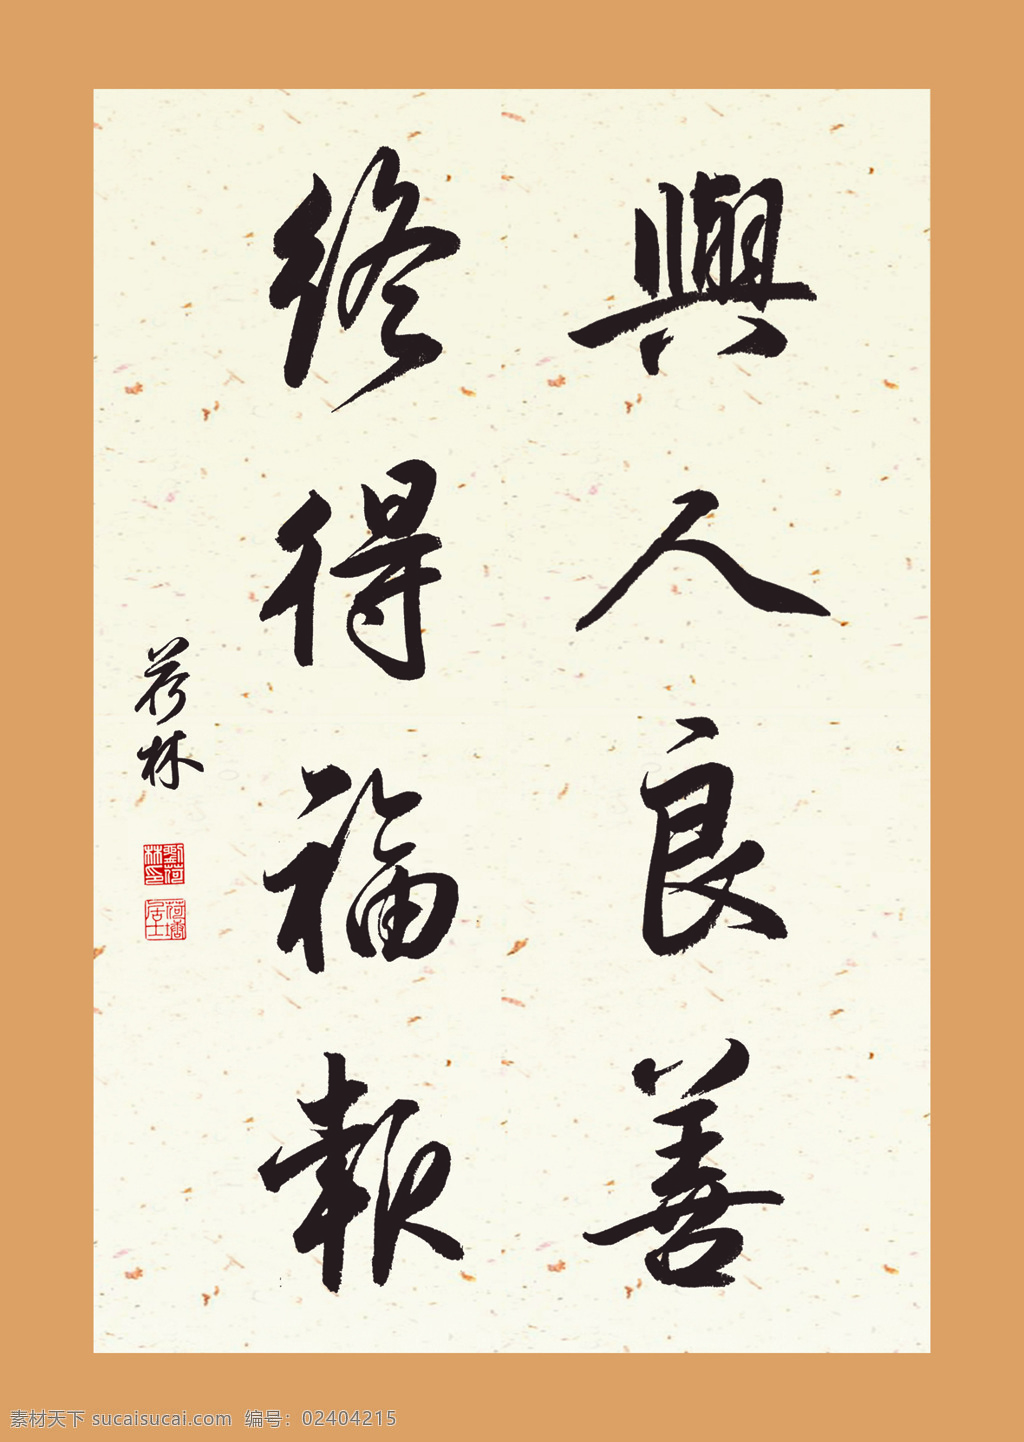 與人良善
終得福報
荷林
劉荷林印
荷塘居士
素材天下 sucaisucai.com 编号：02404215